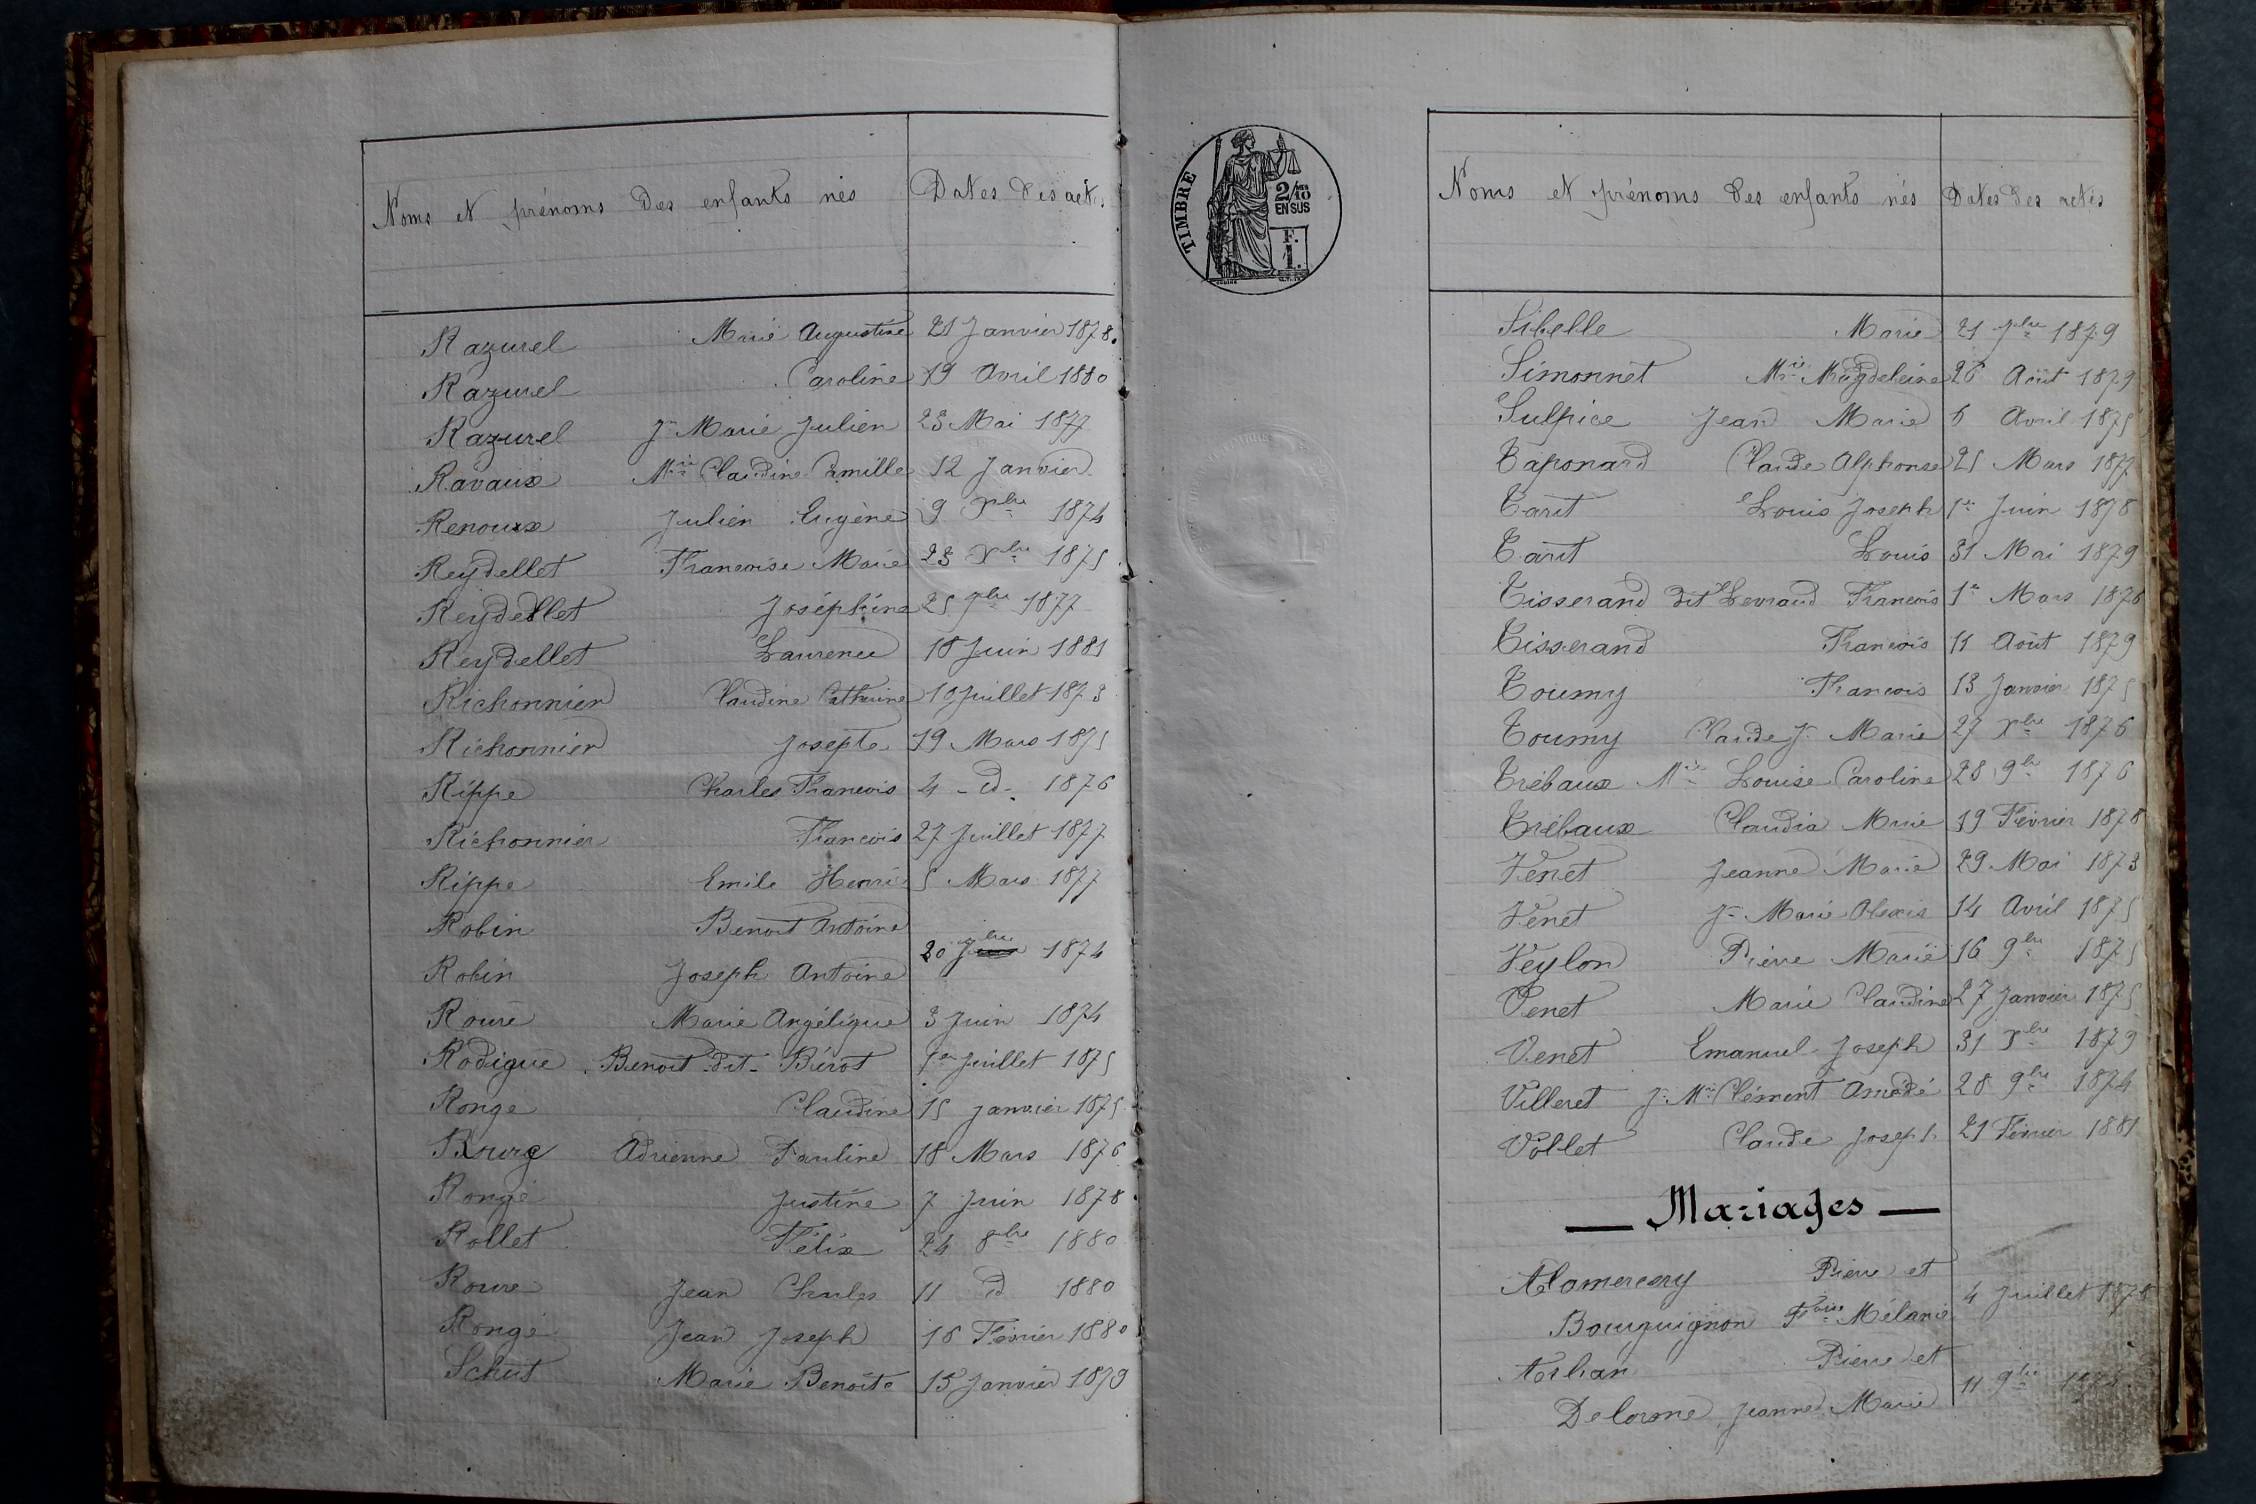 Noms et prénoms des enfants nés Dates des actes
Razurel Marie Augustine 21 Janvier 1878.
Razurel Caroline 19 Avril 1880
Razurel Jn Marie Julien 23 Mai 1877
Ravaux Mie Claudine Camille 12 Janvier
Renoux Julien Eugène 9 Xbre 1874
Reydellet Francoise Marie 23 Xbre 1875
Reydellet Joséphine 25 7bre 1877
Reydellet Laurence 18 Juin 1881
Richonnier Claudine Catherine 10 Juillet 1873
Richonnier Josepte 19 Mars 1875
Rippe Charles Francois 4 - d - 1876
Richonnier Francois 27 Juillet 1877
Rippe Emile Henri 5 Mars 1877
Robin Benoit Antoine
20 7bre 1874
Robin Joseph Antoine
Roure Marie Angélique 3 Juin 1874
Rodigue Benoit dit Biérot 1er Juillet 1875
Ronge Claudine 15 Janvier 1875
Adrienne Pauline 18 Mars 1876
Rongé Justine 7 Juin 1878
Rollet Félix 24 8bre 1880
Roure Jean Charles 11 d 1880
Rongé Jean Joseph 16 Février 1880
Schut Marie Benoite 15 Janvier 1879
TIMBRE
2/10es
EN SUS
F.
1.
Noms et prénoms des enfants nés Dates des actes
Sibelle Marie 21 7bre 1879
Simonnet Mie Magdeleine 26 Août 1879
Sulpice Jean Marie 6 Avril 1875
Taponard Claude Alphonse 25 Mars 1877
Tarit Louis Joseph 1er Juin 1878
Tarit Louis 31 Mai 1879
Tisserand dit Levraud Francois 1er Mars 1876
Tisserand Francois 11 Août 1879
Toumy Francois 13 Janvier 1875
Toumy Claude Jn Marie 27 Xbre 1876
Trébaux Mie Louise Caroline 28 9bre 1876
Trébaux Claudia Marie 19 Février 1878
Venet Jeanne Marie 29 Mai 1873
Venet Jn Marie Alexis 14 Avril 1875
Veylon Pierre Marie 16 9bre 1875
Venet Marie Claudine 27 Janvier 1875
Venet Emanuel Joseph 31 Xbre 1879
Villeret Jn Mie Clément Amédé 28 9bre 1874
Vollet Claude Joseph 21 Février 1881
— Mariages —
Alamercery Pierre et
4 Juillet 1878
Bourguignon Foise Mélanie
Arban Pierre et
11 9bre
Delorme Jeanne Marie